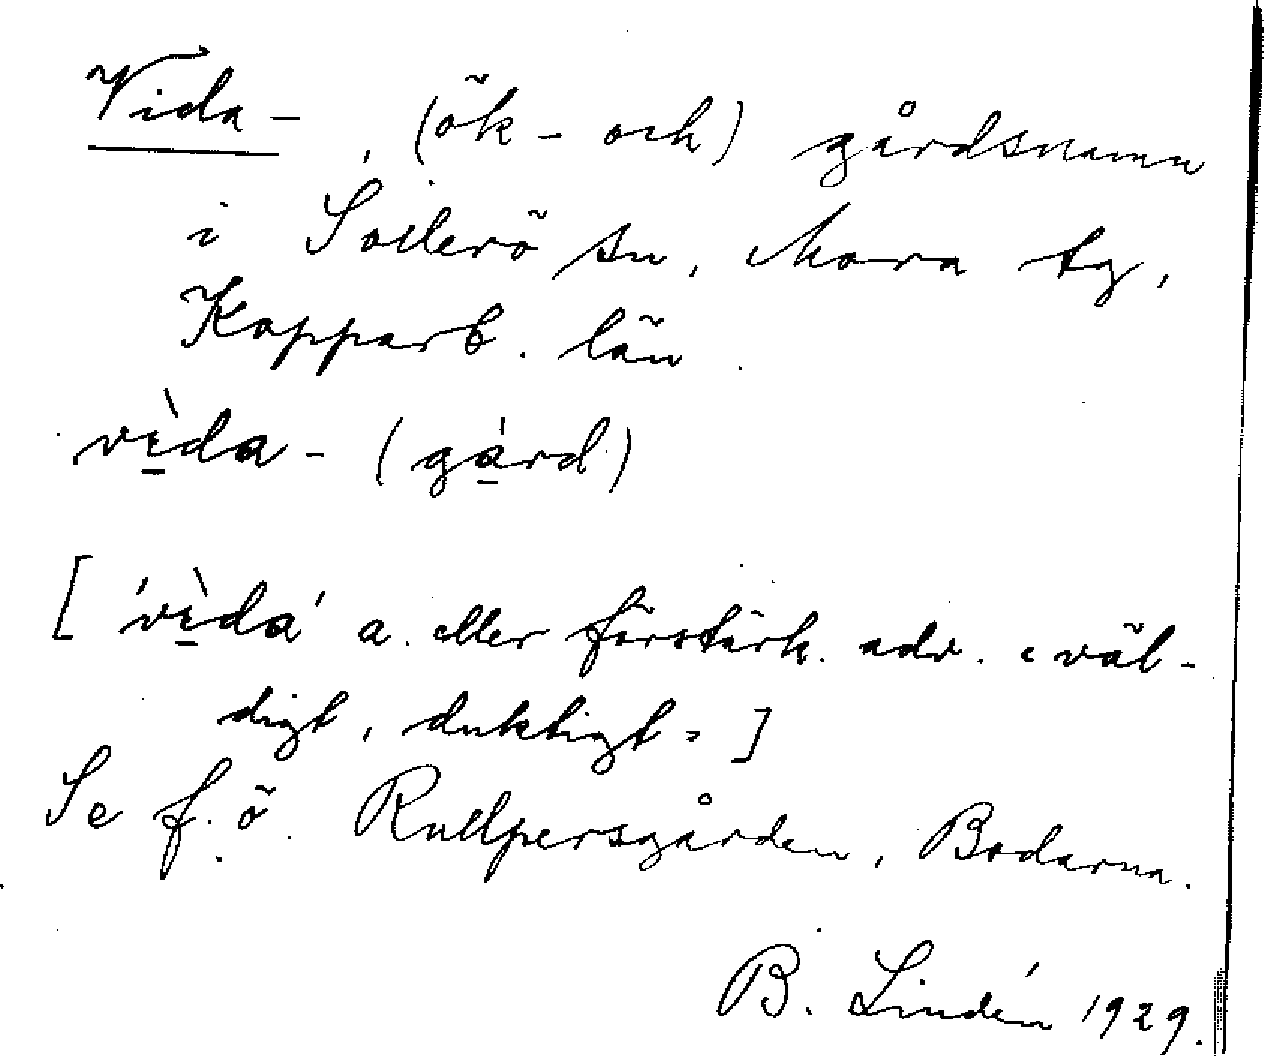 Vida-, (ök- och) gårdsnamn
i Sollerö sn, Mora tg,
Kopparb. län.
vìda- (gárd)
[ 'vìda' a. eller förstärk. adv. "väl-
digt, duktigt" ]
Se f.ö. Rullpersgården, Bodarna.
B. Lindén 1929.